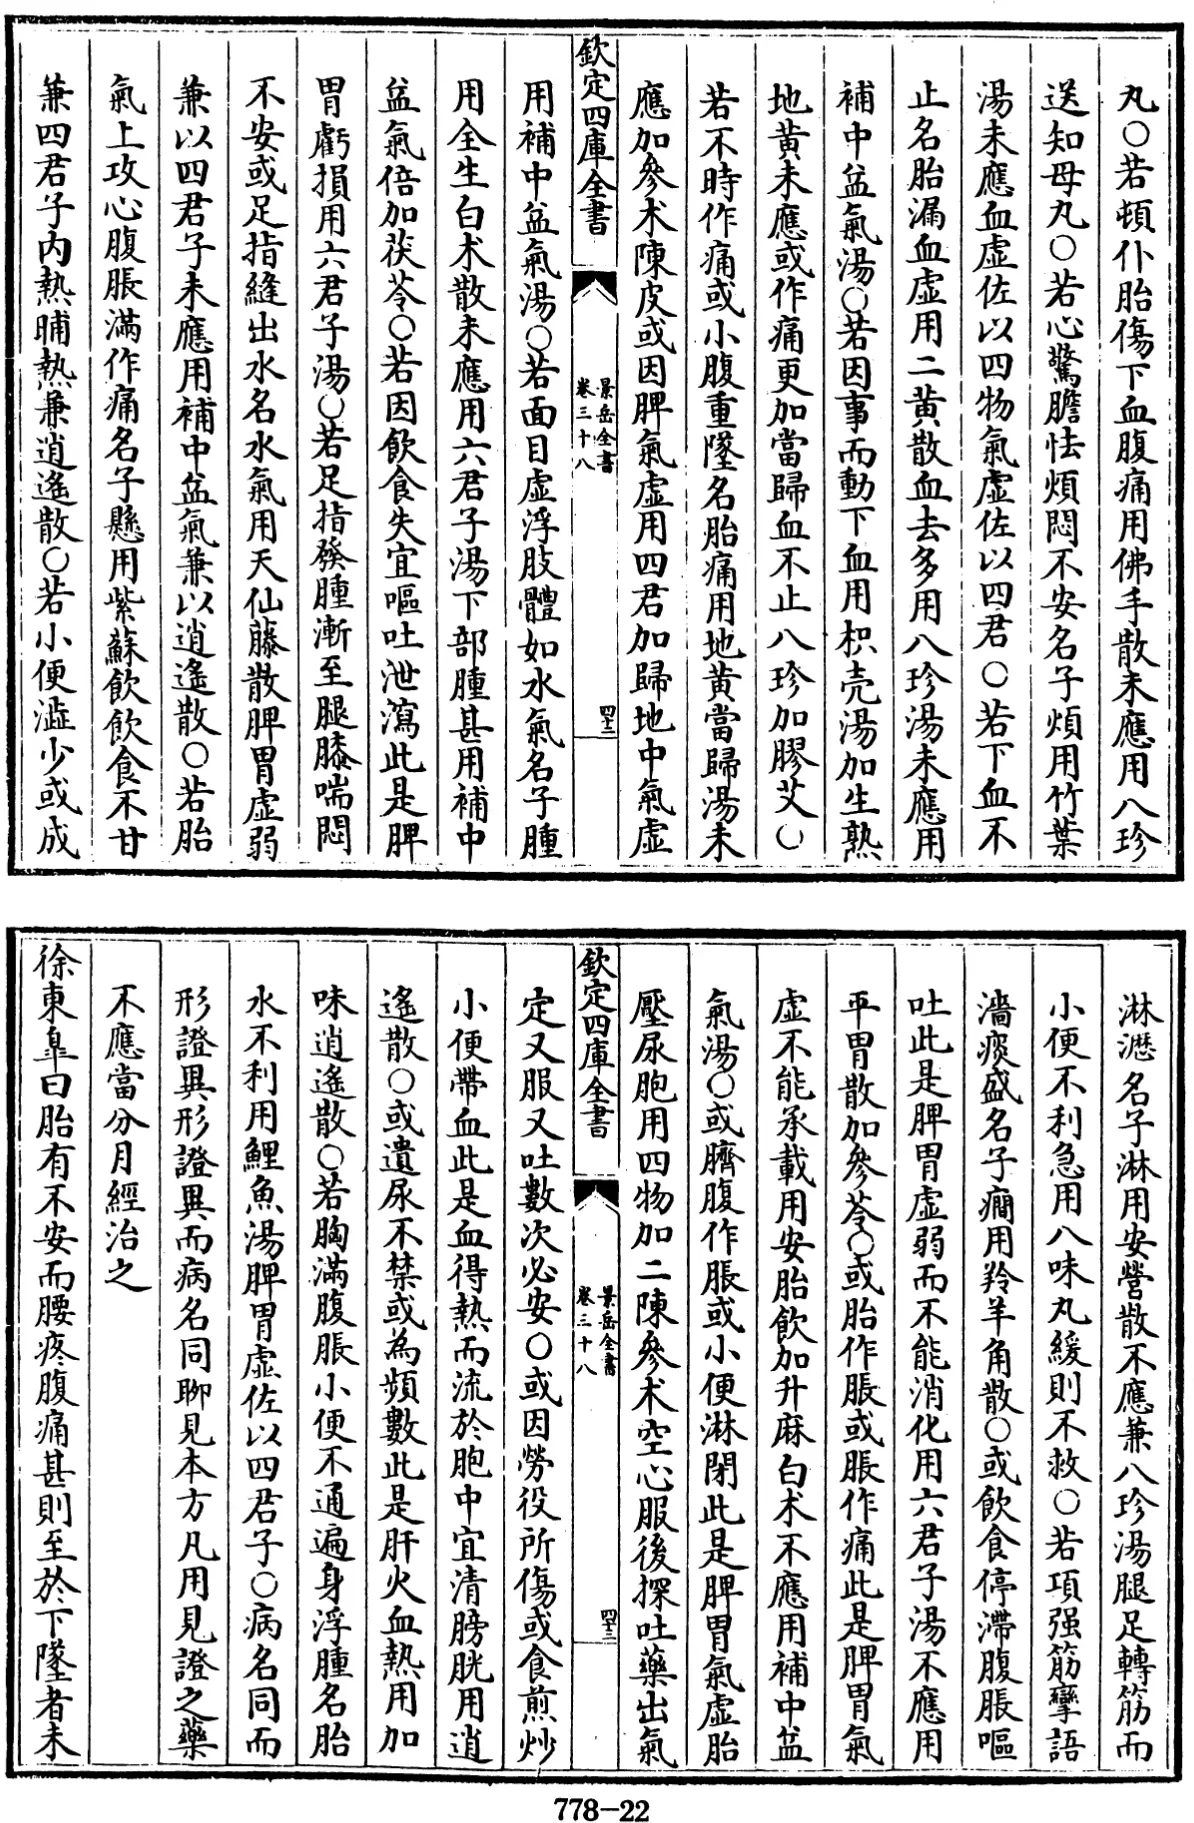 丸○若頓仆胎傷下血腹痛用佛手散未應用八珍
送知母丸○若心驚膽怯煩悶不安名子煩用竹葉
湯未應血虛佐以四物氣虛佐以四君○若下血不
止名胎漏血虛用二黄散血去多用八珍湯未應用
補中益氣湯○若因事而動下血用枳壳湯加生熟
地黄未應或作痛更加當歸血不止八珍加膠艾○
若不時作痛或小腹重墜名胎痛用地黄當歸湯未
應加參朮陳皮或因脾氣虛用四君加歸地中氣虛
欽定四庫全書
景岳全書
卷三十八
四十二
用補中益氣湯○若面目虛浮肢體如水氣名子腫
用全生白朮散未應用六君子湯下部腫甚用補中
益氣倍加茯苓○若因飲食失宜嘔吐泄瀉此是脾
胃虧損用六君子湯○若足指發腫漸至腿膝喘悶
不安或足指縫出水名水氣用天仙藤散脾胃虛弱
兼以四君子未應用補中益氣兼以逍遙散○若胎
氣上攻心腹脹滿作痛名子懸用紫蘇飲飲食不甘
兼四君子内熱晡熱兼逍遙散○若小便澁少或成
淋瀝名子淋用安營散不應兼八珍湯腿足轉筋而
小便不利急用八味丸緩則不救○若項强筋攣語
濇痰盛名子癎用羚羊角散○或飲食停滯腹脹嘔
吐此是脾胃虛弱而不能消化用六君子湯不應用
平胃散加參苓○或胎作脹或脹作痛此是脾胃氣
虛不能承載用安胎飲加升麻白朮不應用補中益
氣湯○或臍腹作脹或小便淋閉此是脾胃氣虛胎
壓尿胞用四物加二陳參朮空心服後探吐藥出氣
欽定四庫全書
景岳全書
卷三十八
四十三
定又服又吐數次必安○或因勞役所傷或食煎炒
小便帶血此是血得熱而流於胞中宜清膀胱用逍
遙散○或遺尿不禁或為頻數此是肝火血熱用加
味逍遙散○若胸滿腹脹小便不通遍身浮腫名胎
水不利用鯉魚湯脾胃虛佐以四君子○病名同而
形證異形證異而病名同聊見本方凡用見證之藥
不應當分月經治之
徐東皐曰胎有不安而腰疼腹痛甚則至於下墜者未
778-22